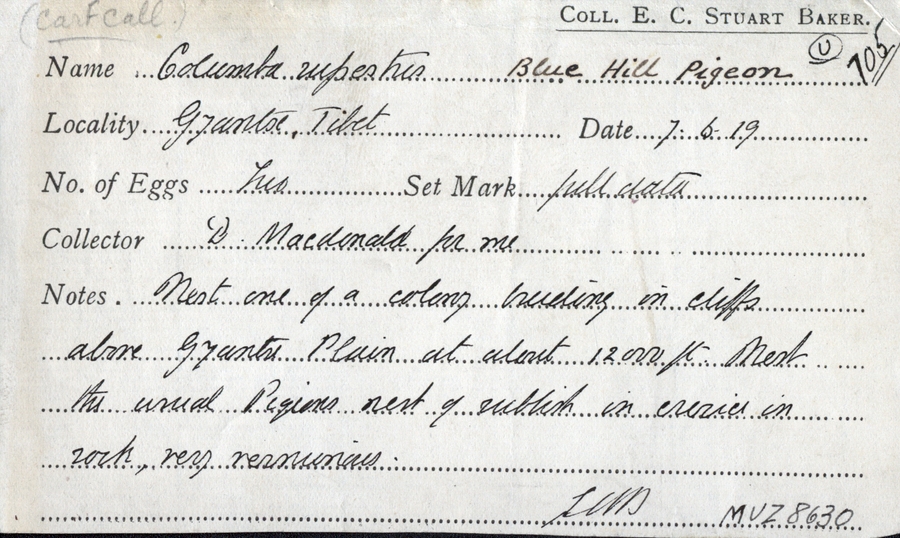 (cart call.)
COLL. E. C. STUART BAKER.
Name Columba rupestris Blue Hill Pigeon (U) 705
Locality Gyantse, Tibet Date 7. 6. 19
No. of Eggs two Set Mark full data
Collector D. Macdonald for me
Notes. Nest one of a colony breeding in cliffs
above Gyantse Plain at about 12000 ft. Nest
the usual Pigeons nest of rubbish in crevice in
rock, very verminous.
MVZ 8630